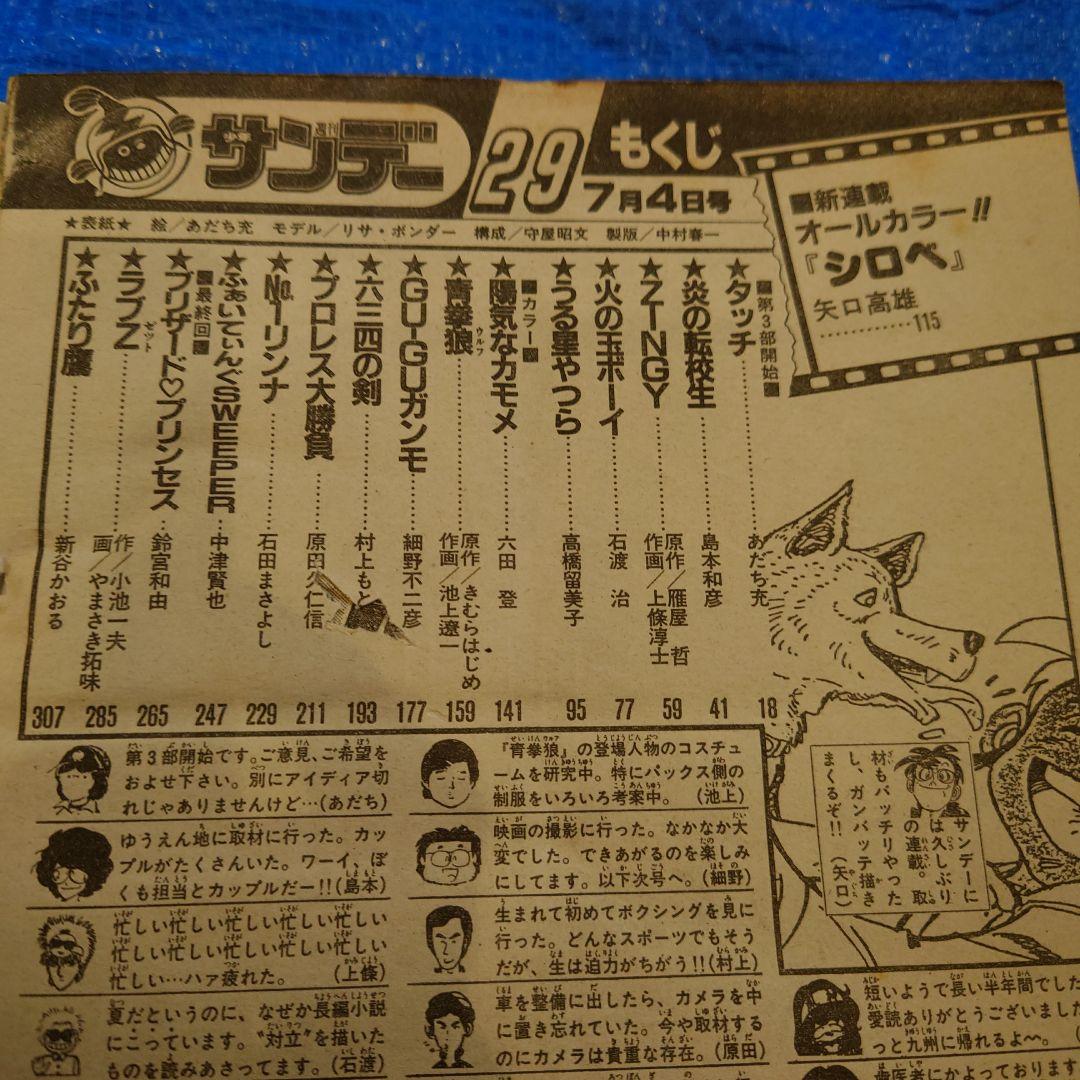 週刊
サンデー
29
もくじ
7月4日号
★表紙★ 絵/あだち充 モデル/リサ・ボンダー 構成/守屋昭文 製版/中村春一
■新連載
オールカラー!!
『シロベ』
矢口高雄
…………115
■第3部開始■
★タッチ……………あだち充 18
★炎の転校生……………島本和彦 41
★ZINGY……………原作/雁屋 哲 作画/上條淳士 59
★火の玉ボーイ……………石渡 治 77
★うる星やつら……………高橋留美子 95
■カラー■
★陽気なカモメ……………六田 登 141
★青拳狼 ウルフ……………原作/きむらはじめ 作画/池上遼一 159
★GU-GUガンモ……………細野不二彦 177
★六三四の剣……………村上もと 193
★プロレス大勝負……………原田久仁信 211
★No.1リンナ……………石田まさよし 229
★ふぁいてぃんぐSWEEPER……………中津賢也 247
■最終回■
★ブリザード♡プリンセス……………鈴宮和由 265
★ラブZ ゼット……………作/小池一夫 画/やまさき拓味 285
★ふたり鷹……………新谷かおる 307
サンデーに
は久しぶり
の連載。取
材もバッチリやった
し、ガンバッテ描き
まくるぞ!! (矢口)
第3部開始です。ご意見、ご希望を
およせ下さい。別にアイディア切
れじゃありませんけど…(あだち)
ゆうえん地に取材に行った。カッ
プルがたくさんいた。ワーイ、ぼ
くも担当とカップルだー!!(島本)
忙しい忙しい忙しい忙しい忙しい
忙しい忙しい忙しい忙しい忙しい
忙しい…ハァ疲れた。 (上條)
夏だというのに、なぜか長編小説
にこっています。“対立”を描いた
ものを読みあさってます。(石渡)
『青拳狼』の登場人物のコスチュ
ームを研究中。特にバックス側の
制服をいろいろ考案中。(池上)
映画の撮影に行った。なかなか大
変でした。できあがるのを楽しみ
にしてます。以下次号へ。(細野)
生まれて初めてボクシングを見に
行った。どんなスポーツでもそう
だが、生は迫力がちがう!!(村上)
車を整備に出したら、カメラを中
に置き忘れていた。今や取材する
のにカメラは貴重な存在。(原田)
短いようで長い半年間でした
愛読ありがとうございました
っと九州に帰れるよ〜。(
歯医者にかよっております